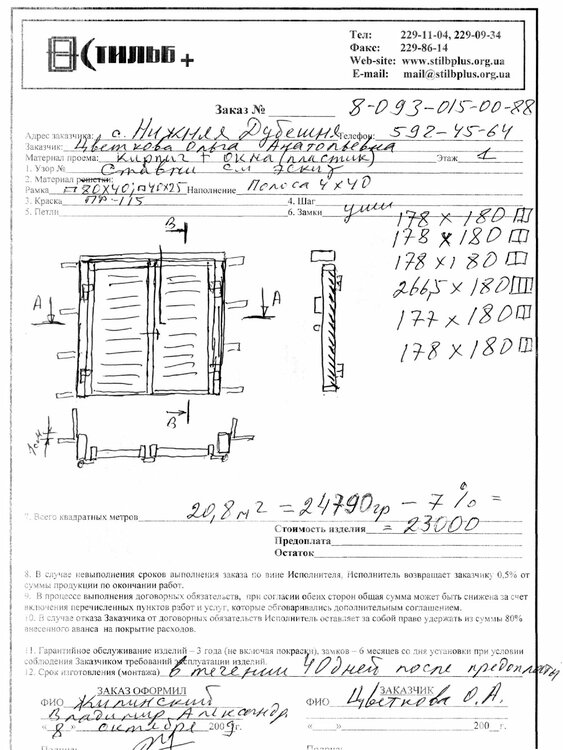 СТИЛЬБ+
Тел: 229-11-04, 229-09-34
Факс: 229-86-14
Web-site: www.stilbplus.org.ua
E-mail: mail@stilbplus.org.ua
Заказ № 8-093-015-00-88
Адрес заказчика: с. Нижняя Дубешня Телефон: 592-45-64
Заказчик: Цветкова Ольга Анатольевна
Материал проема: кирпич + окна (пластик) Этаж 1
1. Узор № Ставни см эскиз
2. Материал решетки:
Рамка П80х40; П40х25 Наполнение Полоса 4х40
3. Краска ПФ-115 4. Шаг
5. Петли 6. Замки уши
178 х 180
178 х 180
178 х 180
266,5 х 180
177 х 180
178 х 180
В
А А
В
7. Всего квадратных метров 20,8 м² = 24790гр - 7% =
Стоимость изделия = 23000
Предоплата
Остаток
8. В случае невыполнения сроков выполнения заказа по вине Исполнителя, Исполнитель возвращает заказчику 0,5% от
суммы продукции по окончании работ.
9. В процессе выполнения договорных обязательств, при согласии обеих сторон общая сумма может быть снижена за счет
включения перечисленных пунктов работ и услуг, которые обговаривались дополнительным соглашением.
10. В случае отказа Заказчика от договорных обязательств Исполнитель оставляет за собой право удержать из суммы 80%
внесенного аванса на покрытие расходов.
11. Гарантийное обслуживание изделий – 3 года (не включая покраски), замков – 6 месяцев со дня установки при условии
соблюдения Заказчиком требований эксплуатации изделий.
12. Срок изготовления (монтажа) в течении 40 дней после предоплаты
ЗАКАЗ ОФОРМИЛ ЗАКАЗЧИК
ФИО Жилинский ФИО Цветкова О.А.
Владимир Александр
« 8 » октября 2009г. «___»________200_г.
Подпись